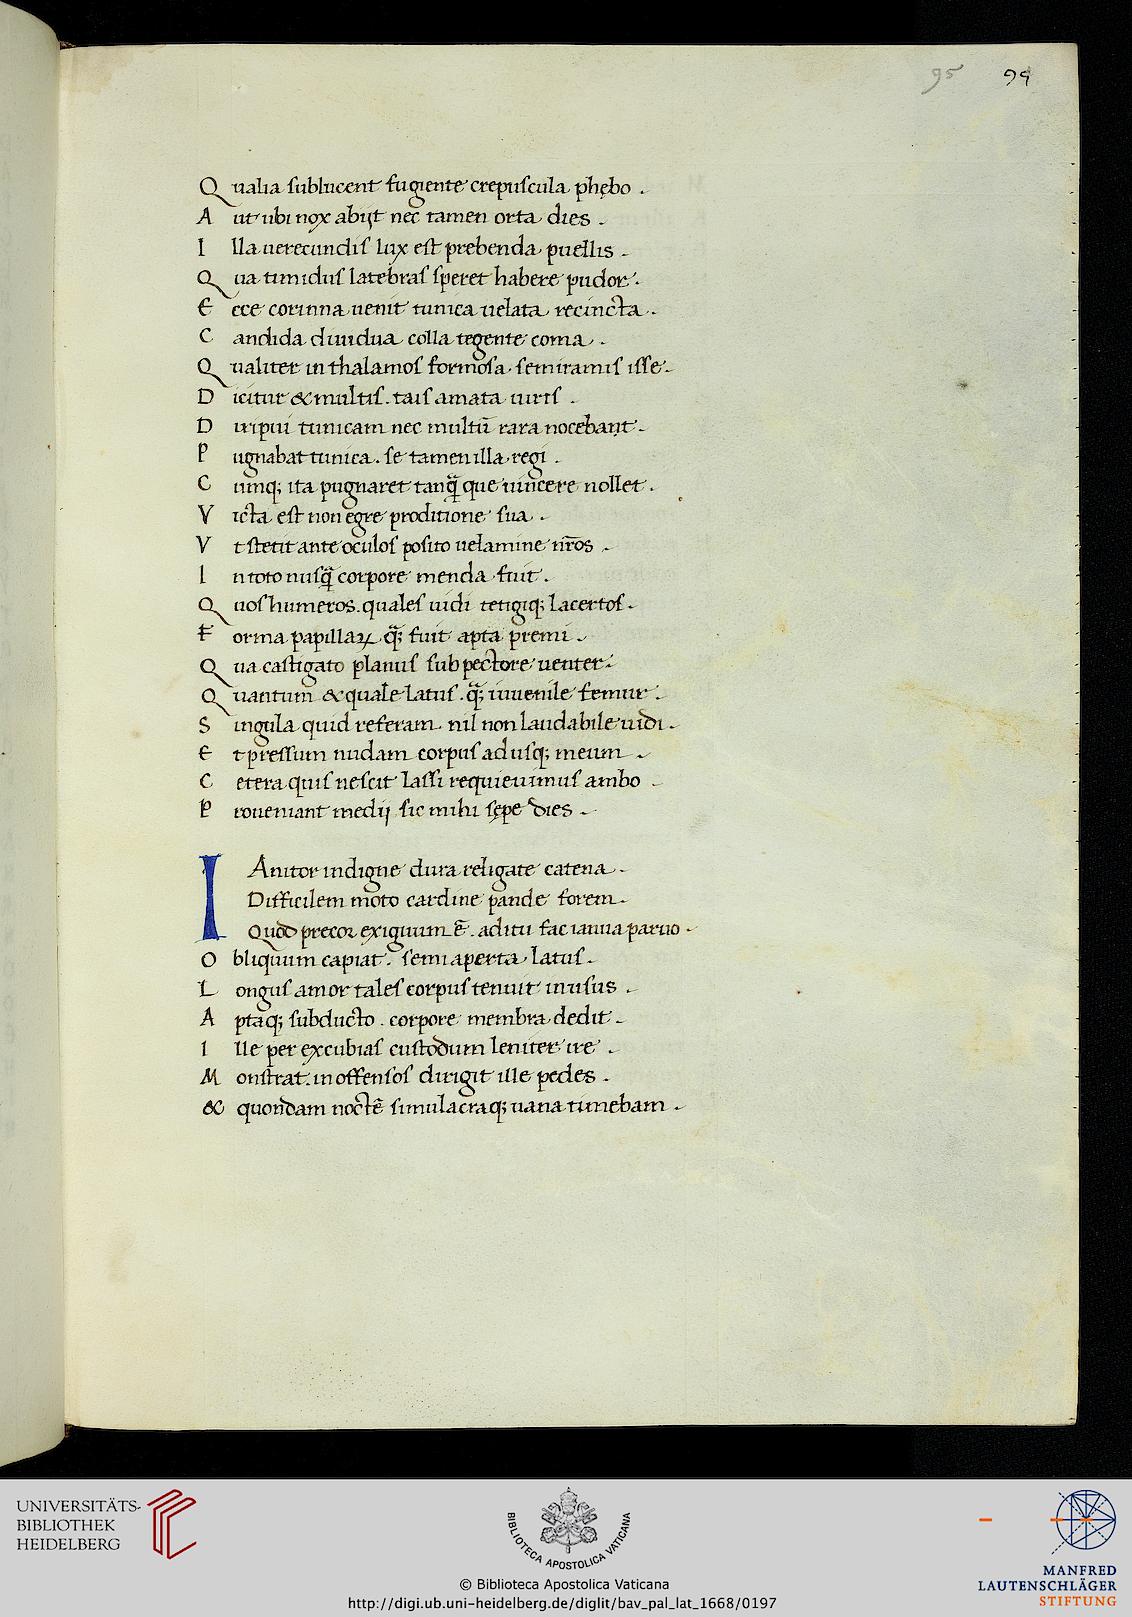 95 99
Qualia sublucent fugiente crepuscula phębo .
Aut ubi nox abijt nec tamen orta dies .
Illa uerecundis lux est prebenda puellis .
Qua timidus latebras speret habere pudor .
Ecce corinna uenit tunica uelata recincta .
Candida diuidua colla tegente coma .
Qualiter in thalamos formosa semiramis isse .
Dicitur & multis . tais amata uiris .
Diripui tunicam nec multū rara nocebant .
Pugnabat tunica . se tamen illa regi .
Cumq; ita pugnaret tanq̄ que uincere nollet .
Victa est non egre proditione sua .
Vt stetit ante oculos posito uelamine nr̄os .
In toto nusq̄ corpore menda fuit .
Quos humeros . quales uidi tetigiq; lacertos .
Forma papillaꝝ q̄; fuit apta premi .
Qua castigato planus sub pectore uenter .
Quantum & quale latus . q̄; iuuenile femur .
Singula quid referam nil non laudabile uidi .
Et pressum nudam corpus ad usq; meum .
Cetera quis nescit lassi requieuimus ambo .
Proueniant medij sic mihi sępe dies .
IAnitor indigne dura religate catena .
Difficilem moto cardine pande forem .
Quod precor exiguum ē . aditu fac ianua paruo .
Obliquum capiat . semiaperta latus .
Longus amor tales corpus tenuit in usus .
Aptaq; subducto . corpore membra dedit .
Ille per excubias custodum leniter ire .
Monstrat . inoffensos dirigit ille pedes .
& quondam noctē simulacraq; uana timebam .
UNIVERSITÄTS-
BIBLIOTHEK
HEIDELBERG
BIBLIOTECA APOSTOLICA VATICANA
MANFRED
LAUTENSCHLÄGER
STIFTUNG
© Biblioteca Apostolica Vaticana
http://digi.ub.uni-heidelberg.de/diglit/bav_pal_lat_1668/0197